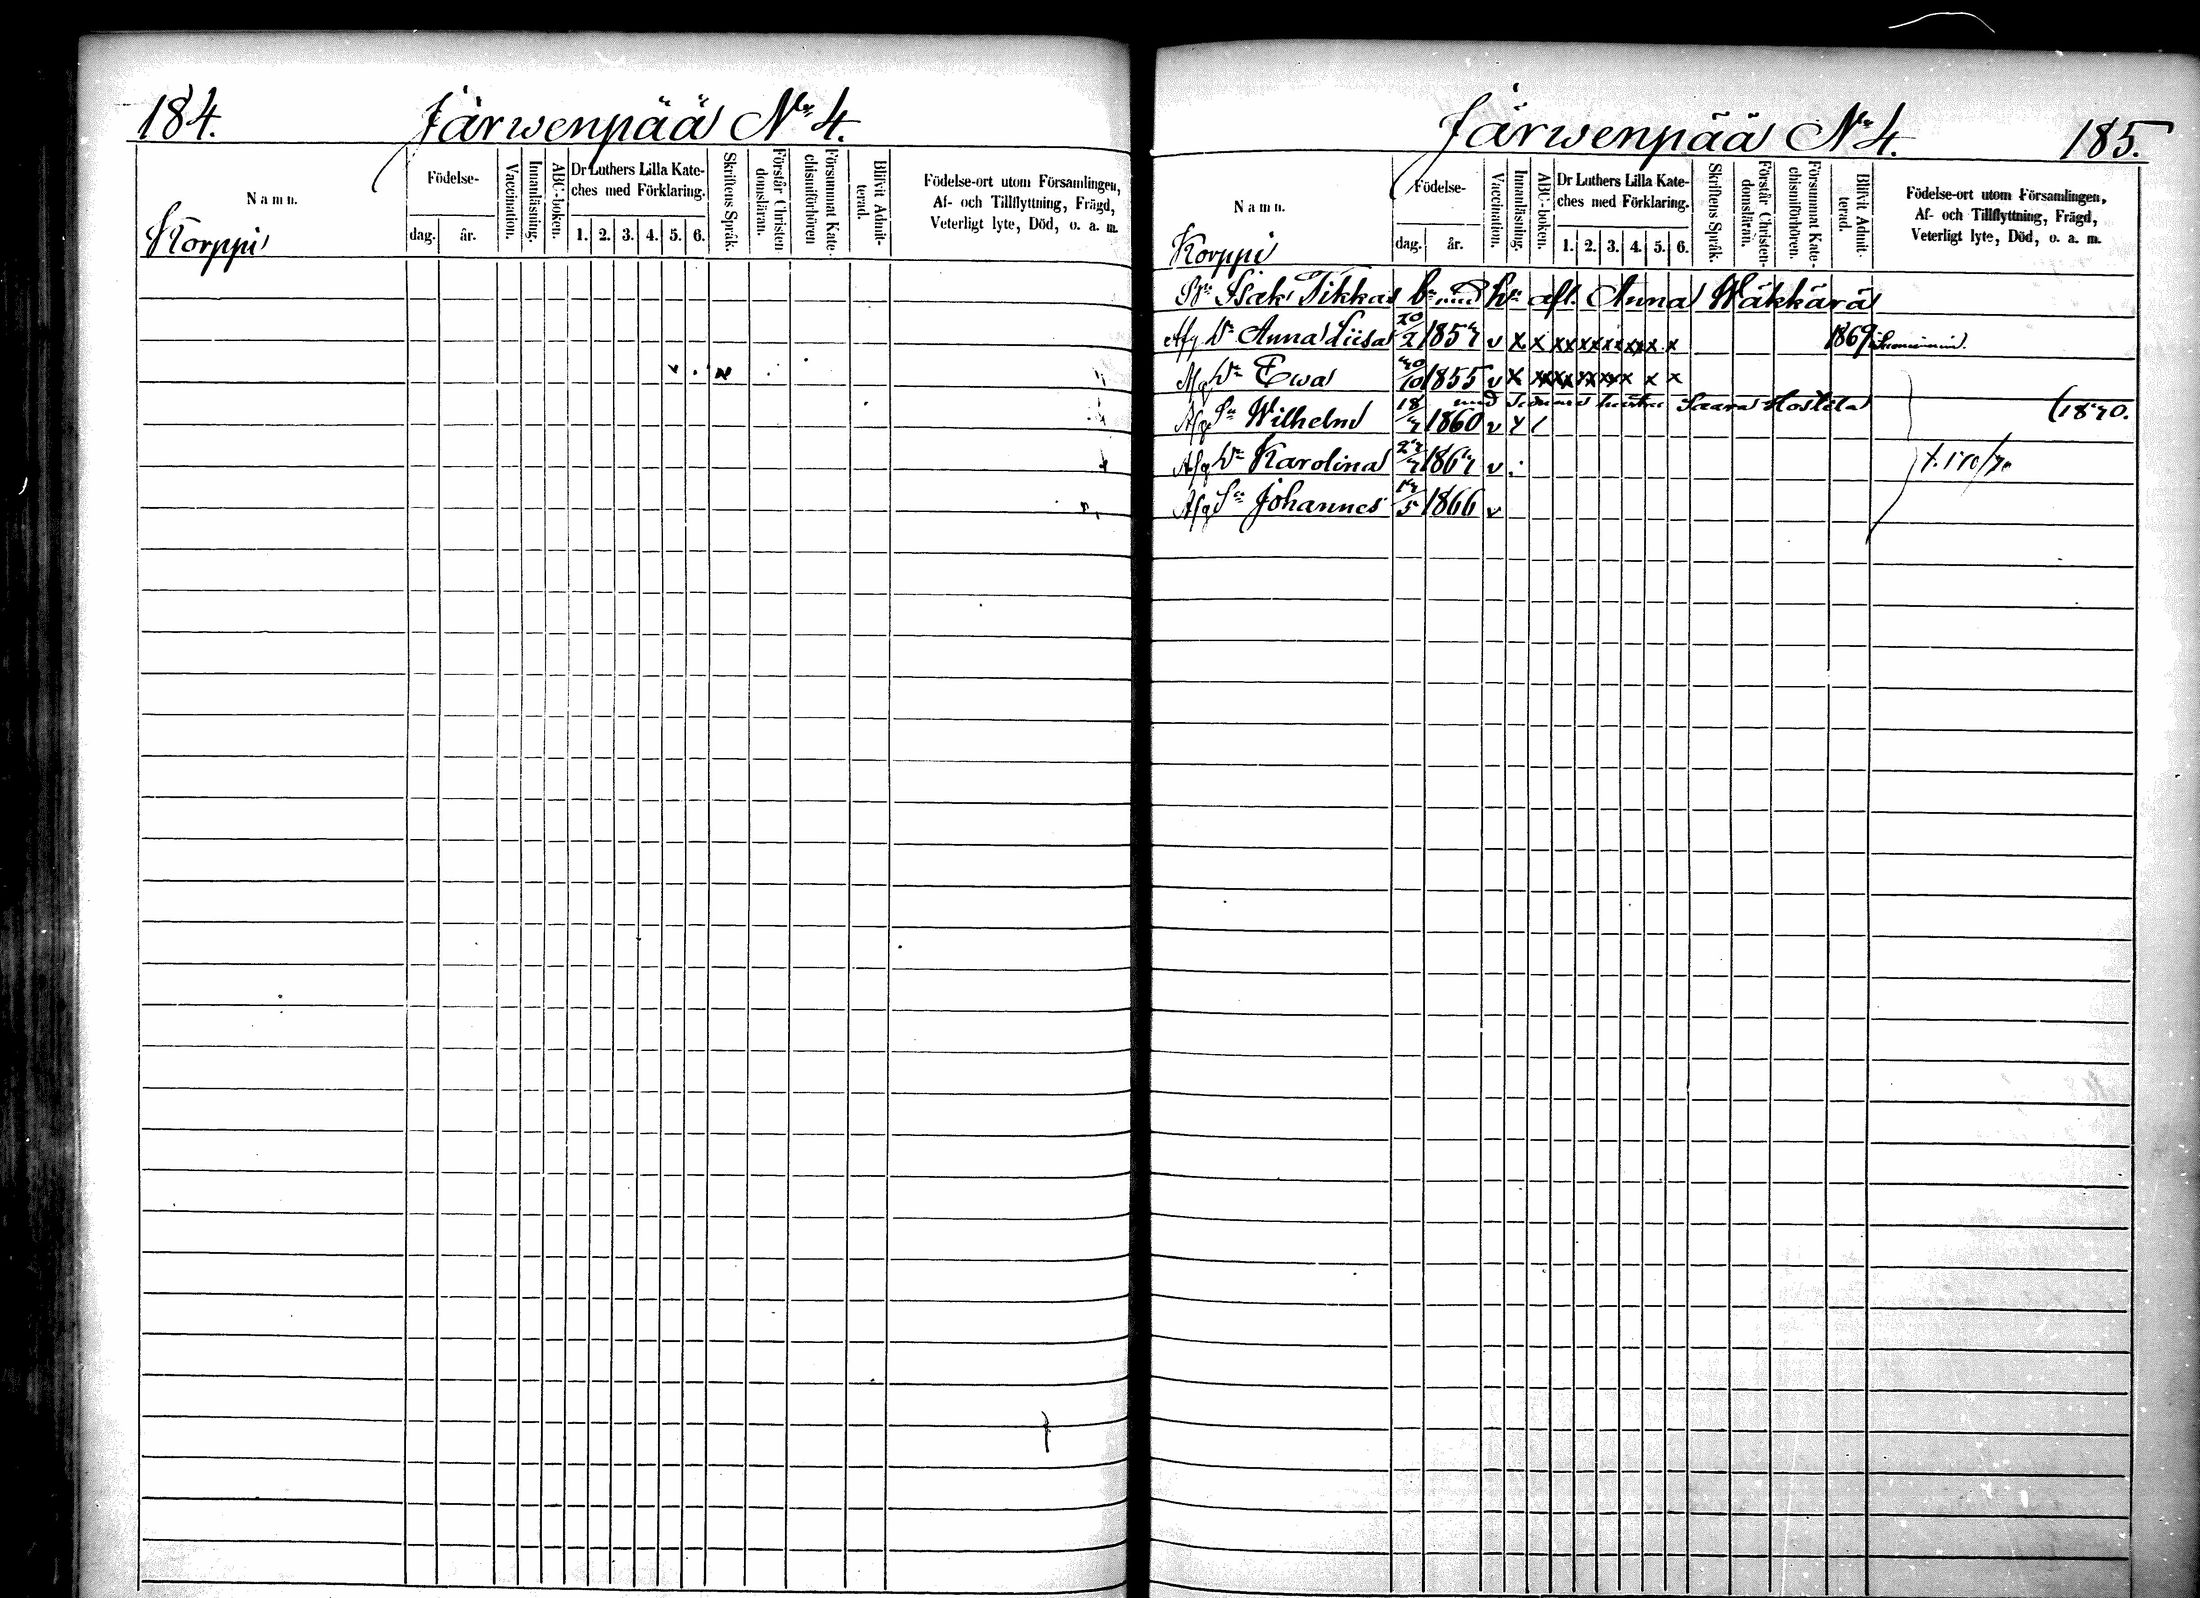 184.
Järwenpää N:o 4.
Namn.
Korppi
Födelse-
dag.
år.
Vaccination.
Innanläsning.
ABC-boken.
Dr Luthers Lilla Kate-
ches med Förklaring.
1. 2. 3. 4. 5. 6.
Skriftens Språk.
Förstår Christen
domsläran.
Försummat Kate-
chismiförhören
Blifvit Admit-
terad.
Födelse-ort utom Församlingen,
Af- och Tillflyttning, Frägd,
Veterligt lyte, Död, o. a. m.
Järwenpää N:o 4.
185.
Namn.
Korppi
Födelse-
dag.
år.
Vaccination.
Innanläsning.
ABC-boken.
Dr Luthers Lilla Kate-
ches med Förklaring.
1. 2. 3. 4. 5. 6.
Skriftens Språk.
Förstår Christen-
domsläran.
Försummat Kate-
chismiförhören.
Blifvit Admit-
terad.
Födelse-ort utom Församlingen,
Af- och Tillflyttning, Frägd,
Veterligt lyte, Död, o. a. m.
Isak Tikka bn med hu afl. Anna Wäkkärä
Afg Dr Anna Liisa 20/2 1857 v x x xx xx xx xx x x 1869
Afg Dr Ewa 1855 v x xx xx xx xx x x x
med sednare hustru Saara Hostila
Afg Sn Wilhelm 18/7 1860 v (1870.
Afg Dr Karolina 27/7 1867 v
Afg Sn Johannes 17/5 1866 v